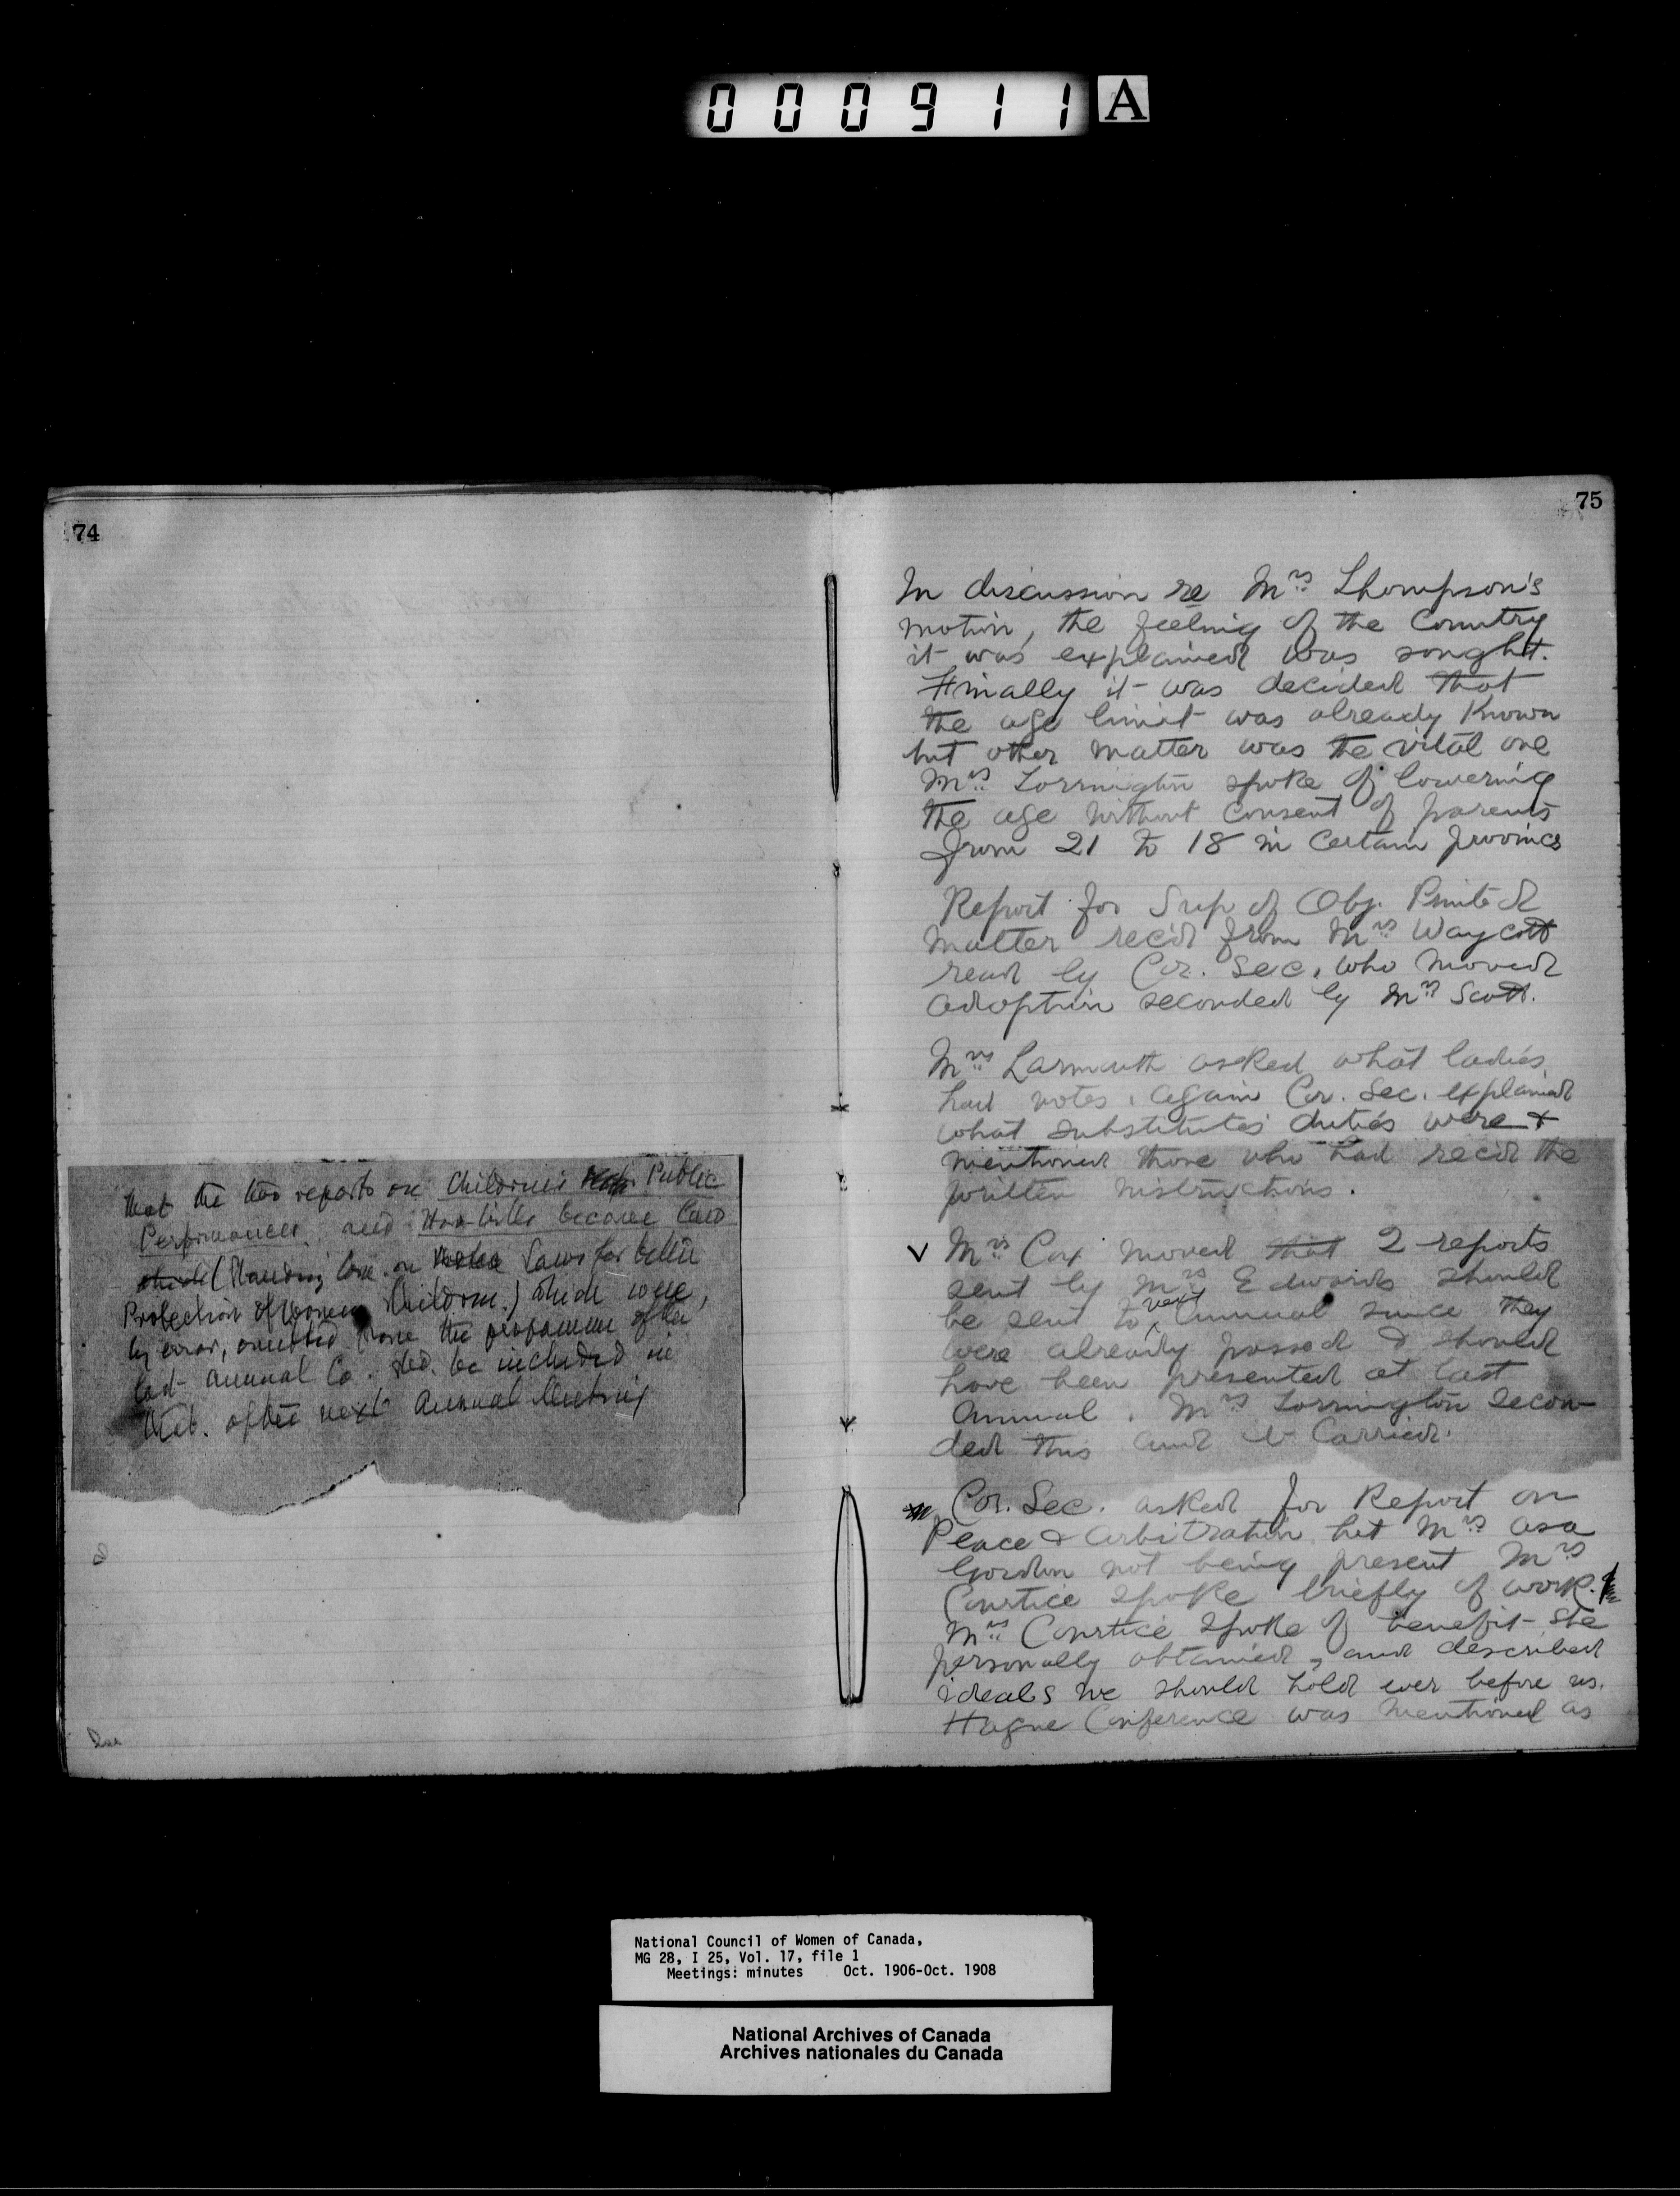 000911 A
74
that the two reports on Children's Public
Performances and How bills become law
(Standing Com. on Laws for better
Protection of Women Children.) which were,
by error, omitted from the programme of the
last annual Co. shd. be included in
that of the next Annual Meeting
75
In discussion re Mrs Thompson's
motion, the feeling of the Country
it was explained was sought.
Finally it was decided that
the age limit was already known
but other matter was the vital one
Mrs Torrington spoke of lowering
the age without consent of parents
from 21 to 18 in certain provinces
Report for Sup of Obj. Printed
matter rec'd from Mrs Waycott
read by Cor. Sec. who moved
adoption seconded by Mrs Scott.
Mrs Larmouth asked what ladies
had votes. Again Cor. Sec. explained
what substitutes' duties were &
mentioned those who had rec'd the
written instructions.
v Mrs Cox moved that 2 reports
sent by Mrs Edwards should
be sent to next Annual since they
were already passed & should
have been presented at last
Annual. Mrs Torrington secon-
ded this and it Carried.
Cor. Sec. asked for Report on
Peace & Arbitration but Mrs Asa
Gordon not being present Mrs
Courtice spoke briefly of work.
Mrs Courtice spoke of benefit she
personally obtained, and described
ideals we should hold ever before us.
Hague Conference was mentioned as
National Council of Women of Canada,
MG 28, I 25, Vol. 17, file 1
Meetings: minutes Oct. 1906-Oct. 1908
National Archives of Canada
Archives nationales du Canada